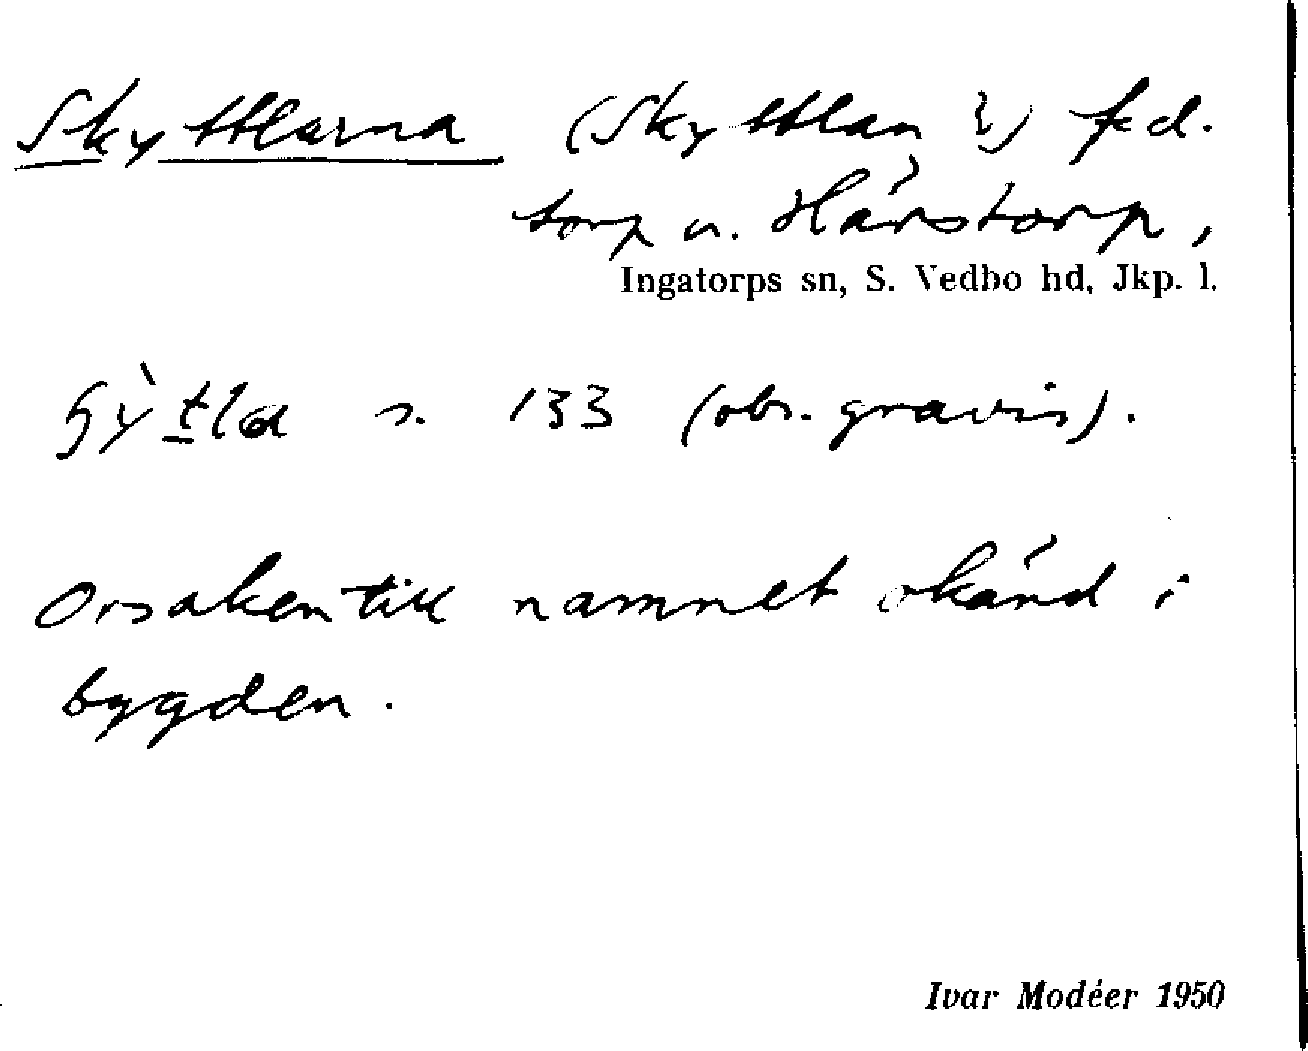 Skyttlarna (Skyttlan?) f.d.
torp u. Hårstorp,
Ingatorps sn, S. Vedbo hd, Jkp. l.
ʃỳtla s. 133 (obs. gravis).
Orsaken till namnet okänd i
bygden.
Ivar Modéer 1950